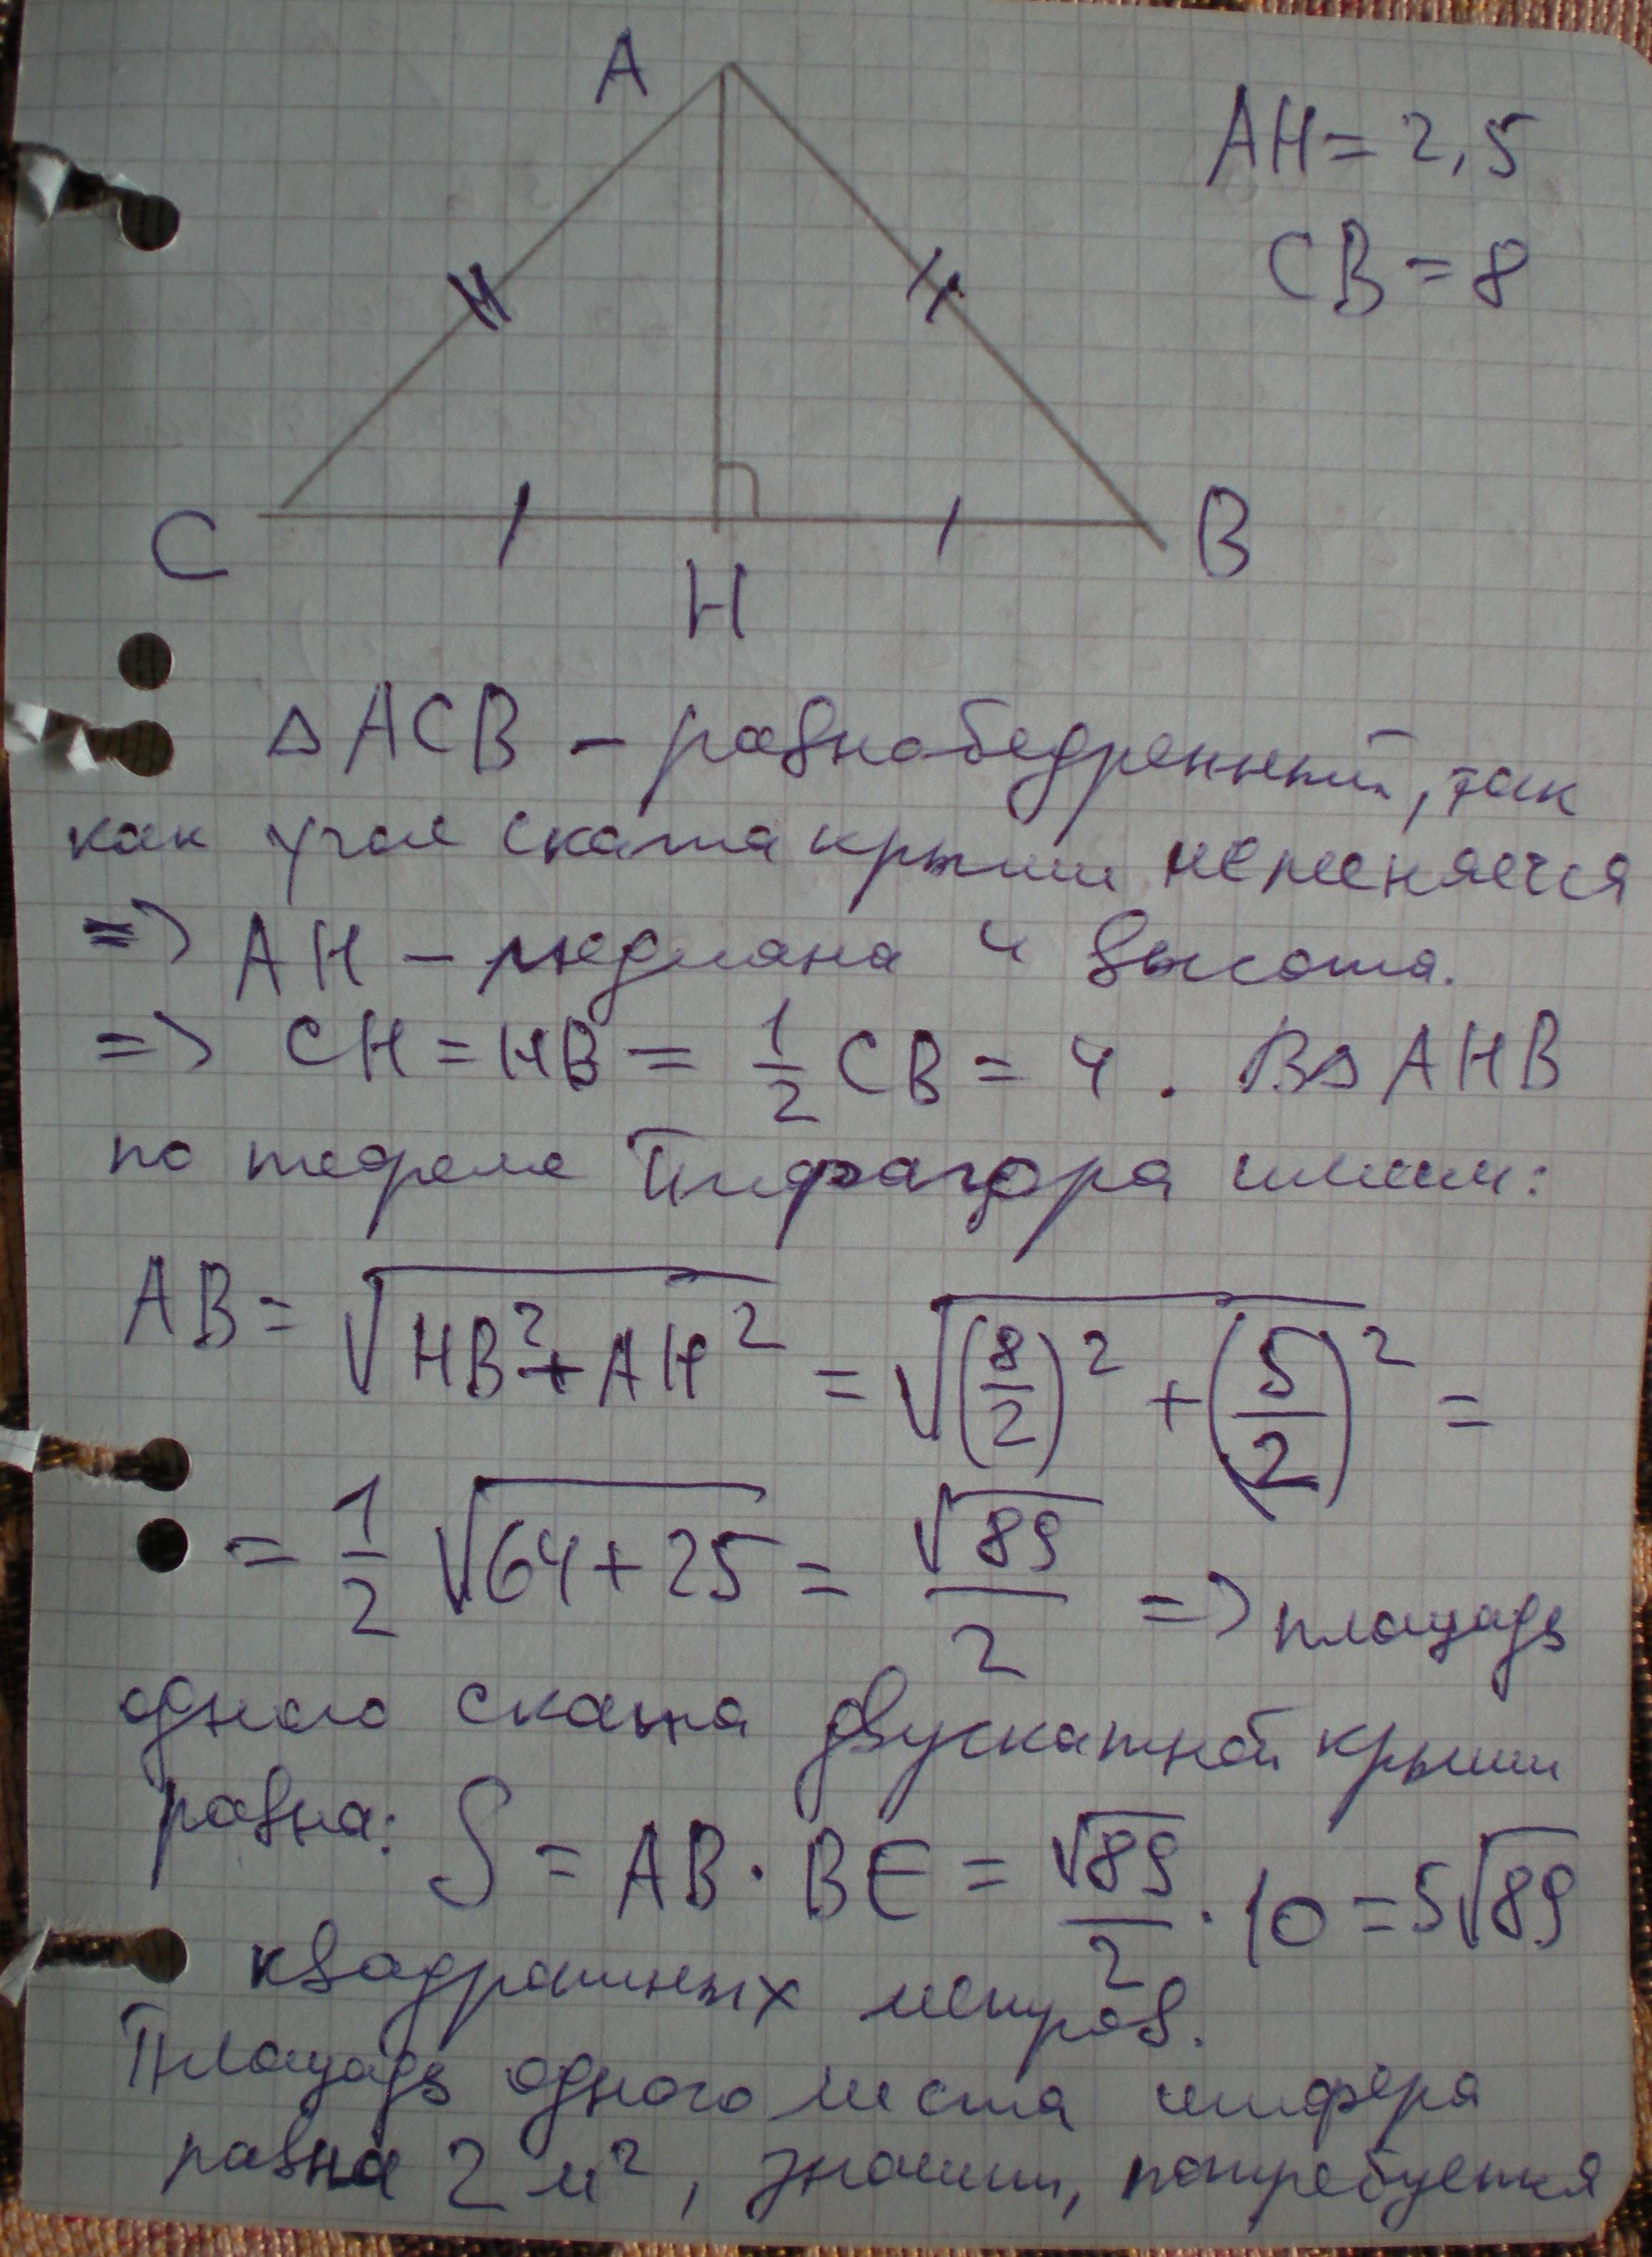 A
AH = 2,5
CB = 8
C
H
B
△ACB – равнобедренный, так
как угол ската крыши не меняется
=> AH – медиана и высота.
=> CH = HB = 1/2 CB = 4. В △AHB
по теореме Пифагора имеем:
AB = √(HB² + AH²) = √((8/2)² + (5/2)²) =
= 1/2 √(64+25) = √89/2 => площадь
одного ската двускатной крыши
равна: S = AB · BE = √89/2 · 10 = 5√89
квадратных метров.
Площадь одного листа шифера
равна 2 м², значит, потребуется